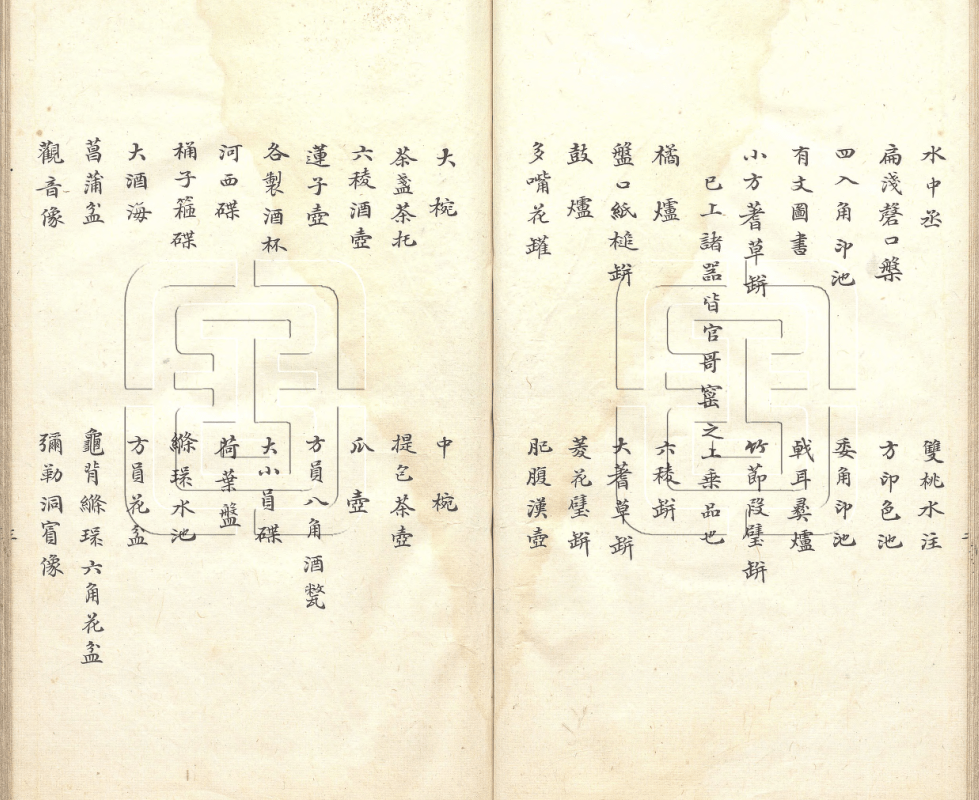 水中丞　雙桃水注
扁淺磬口槃　方印色池
四入角印池　委角印池
有文圖書　戟耳彝爐
小方蓍草缾　竹節段璧缾
已上諸器皆官哥窰之上乗品也
橘爐　六稜缾
盤口紙槌缾　大蓍草缾
鼓爐　菱花璧缾
多嘴花罐　肥腹漢壺
大椀　中椀
茶盞茶托　提包茶壺
六稜酒壺　瓜壺
蓮子壺　方員八角酒甏
各製酒杯　大小員碟
河西碟　荷葉盤
桶子箍碟　縧環水池
大酒海　方員花盆
菖蒲盆　龜背縧環六角花盆
觀音像　彌勒洞賓像